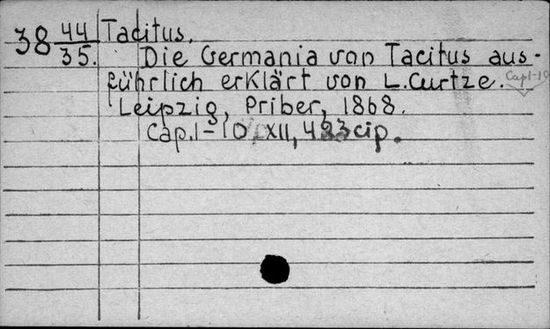 38 44/35. Tacitus.
Die Germania von Tacitus aus-
führlich erklärt von L. Curtze. Cap 1-10
Leipzig, Priber, 1868.
Cap. 1-10 XII, 423 cip.